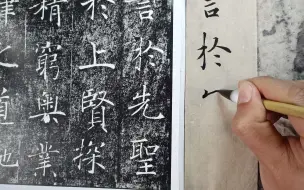 言於
言於先聖
於上賢探
精窮奥業